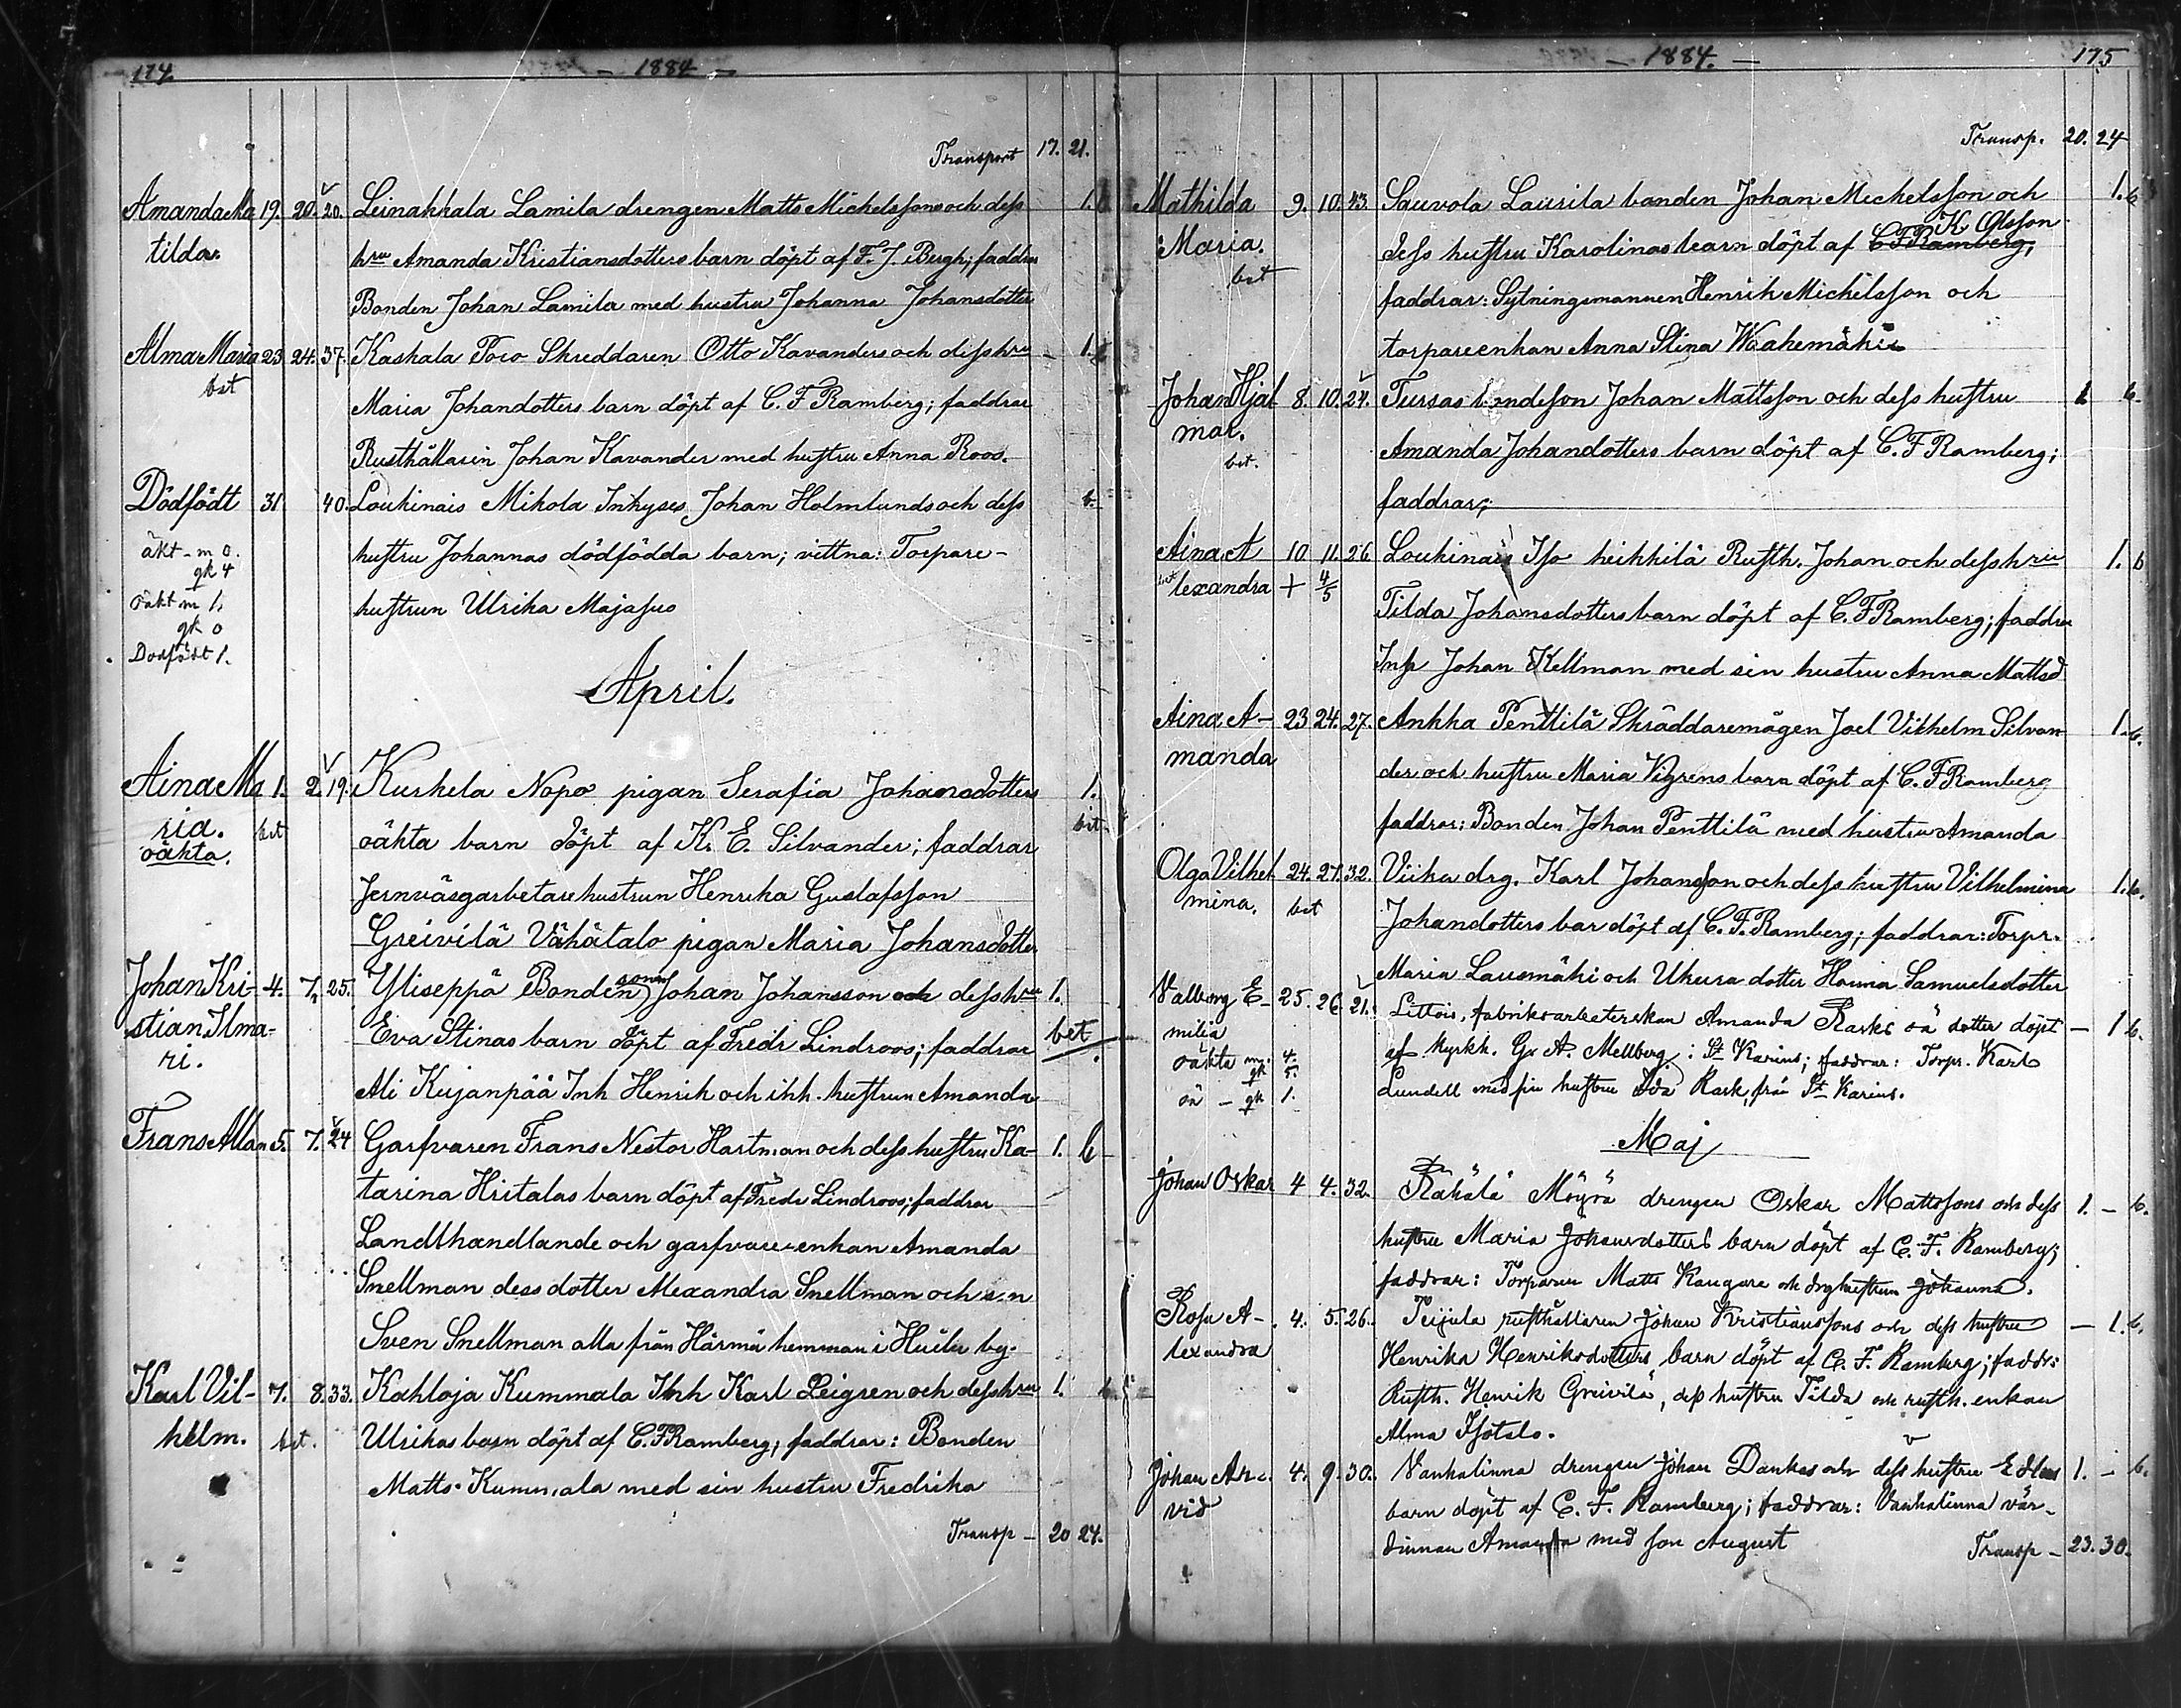 174. - 1884 -
Transport 17. 21.
Amanda Ma 19. 20. 20. Leinakkala Lamila drengen Matts Michelssons och dess 1. b
tilda. hru Amanda Kristiansdotters barn döpt af F. J. Bergh; faddrar
Bonden Johan Lamila med hustru Johanna Johansdotter
Alma Maria 23 24. 37. Kaskala Poco Skreddaren Otto Kavanders och dess hru - 1.
bet Maria Johandotters barn döpt af C. F Ramberg; faddrar
Rusthållarin Johan Kavander med hustru Anna Roos.
Dödfödt 31 40. Loukinais Mikola Inhyses Johan Holmlunds och dess b.
äkt - m 0. hustru Johannas dödfödda barn; vittna: Torpare-
qk 4
oäkt m 1. hustrun Ulrika Majasuo
qk 0
Dödfödt 1.
April.
Aina Ma 1. 2. 19. Kurkela Nopo pigan Serafia Johansdotters 1.
ria. bet oäkta barn döpt af K. E. Silvander; faddrar bet
oäkta. Jernväsgarbetare hustrun Henrika Gustafsson
Greivilä Vähätalo pigan Maria Johansdotter
Johan Kri- 4. 7. 25. Yliseppä Bonden sonen Johan Johansson och dess hru 1.
stian Ilma- Eva Stinas barn döpt af Fredr Lindroos; faddrar bet
ri. Ali Kujanpää Inh Henrik och ihh. hustrun Amanda
Frans Allan 5. 7. 24 Garfvaren Frans Nestor Hartman och dess hustru Ka- 1. b
tarina Hritalas barn döpt af Fredr Lindroos; faddrar
Landthandlande och garfvare enkan Amanda
Snellman dess dotter Alexandra Snellman och s.n
Sven Snellman alla från Härmä hemman i by.
Karl Vil- 7. 8. 33. Kahloja Kummala Inh Karl Leigren och dess hru 1.
helm. bet. Ulrikas barn döpt af C. F Ramberg; faddrar: Bonden
Matts Kummala med sin hustru Fredrika
Transp - 20 24.
- 1884. - 175
Transp. 20. 24
Mathilda 9. 10. 43. Sauvola Laurila bonden Johan Mickelsson och 1. b
K Olsson
Maria. dess hustru Karolinas barn döpt af C F Ramberg,
bet faddrar: Sytningsmannen Henrik Michelsson och
torpareenkan Anna Stina Waahemäki
Johan Hjal 8. 10. 24. Tursas bondesson Johan Mattsson och dess hustru 1 b.
mar. Amanda Johandotters barn döpt af C. F Ramberg;
bet. faddrar;
Aina A 10 11. 26 Loukinais Iso heikkilä Rusth. Johan och dess hru 1. b
bet lexandra + 4/5 Tilda Johansdotters barn döpt af C. F Ramberg; faddrar
Inh Johan Kellman med sin hustru Anna Mattsd
Aina A- 23 24. 27. Ankka Penttilä Skräddaremågen Joel Vilhelm Silvan 1. b.
manda der och hustru Maria Vigrens barn döpt af C. F Ramberg
faddrar: Bonden Johan Penttilä med hustru Amanda
Olga Vilhel 24. 27. 32. Viika drg. Karl Johansson och dess hustru Vilhelmina 1. b.
mina. bet Johandotters bar döpt af C. F. Ramberg; faddrar: Torpr.
Maria Lausmäki och Ukura dotter Hanna Samuelsdotter
Valborg E- 25. 26 21. Littois, fabriksarbeterskan Amanda Rasks oä dotter döpt - 1 b.
milia af kyrkh. G. A. Mellberg i St Karins; faddrar: Torpr. Karl
oäkta m. 4. Lundell med sin hustru Ida Rask, från St Karins.
qk 5.
oä - qk 1.
Maj
Johan Oskar 4 4. 32. Räkälä Möyrä drengen Oskar Mattssons och dess 1. - b.
hustru Maria Johansdotters barn döpt af C. F. Ramberg;
faddrar: Torparen Matts Kangare och drghustrun Johanna.
Rosa A- 4. 5. 26. Teijula rusthållaren Johan Kristianssons och dess hustru - 1. b.
lexandra Henrika Henriksdotters barn döpt af C. F. Ramberg; faddr:
Rusth. Henrik Greivilä, dess hustru Tilda och rusth. enkan
Alma Isotalo.
Johan Ar- 4. 9. 30. Vanhalinna drengen Johan Dankas och dess hustru Edlas 1. - b.
vid barn döpt af C. F. Ramberg; faddrar: Vanhalinna vär-
dinnan Amanda med son August Transp - 23. 30.